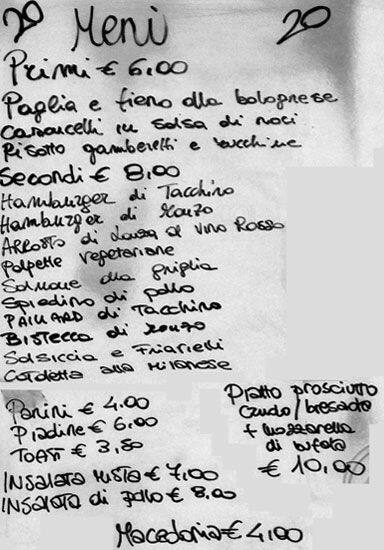 20 Menù 20
Primi € 6,00
Paglia e fieno alla bolognese
Casarcelli in salsa di noci
Risotto gamberetti e zucchine
Secondi € 8,00
Hamburger di Tacchino
Hamburger di Manzo
Arrosto di Lonza al vino Rosso
Polpette vegetariane
Salmone alla griglia
Spiedino di pollo
PAILLARD di Tacchino
Bistecca di manzo
Salsiccia e Friarielli
Cotoletta alla Milanese
Panini € 4.00
Piadine € 6,00
TOAST € 3,80
INSALATA MISTA € 7,00
INSALATA di pollo € 8,00
Piatto prosciutto
crudo/bresaola
+ mozzarella
di bufala
€ 10,00
Macedonia € 4,00